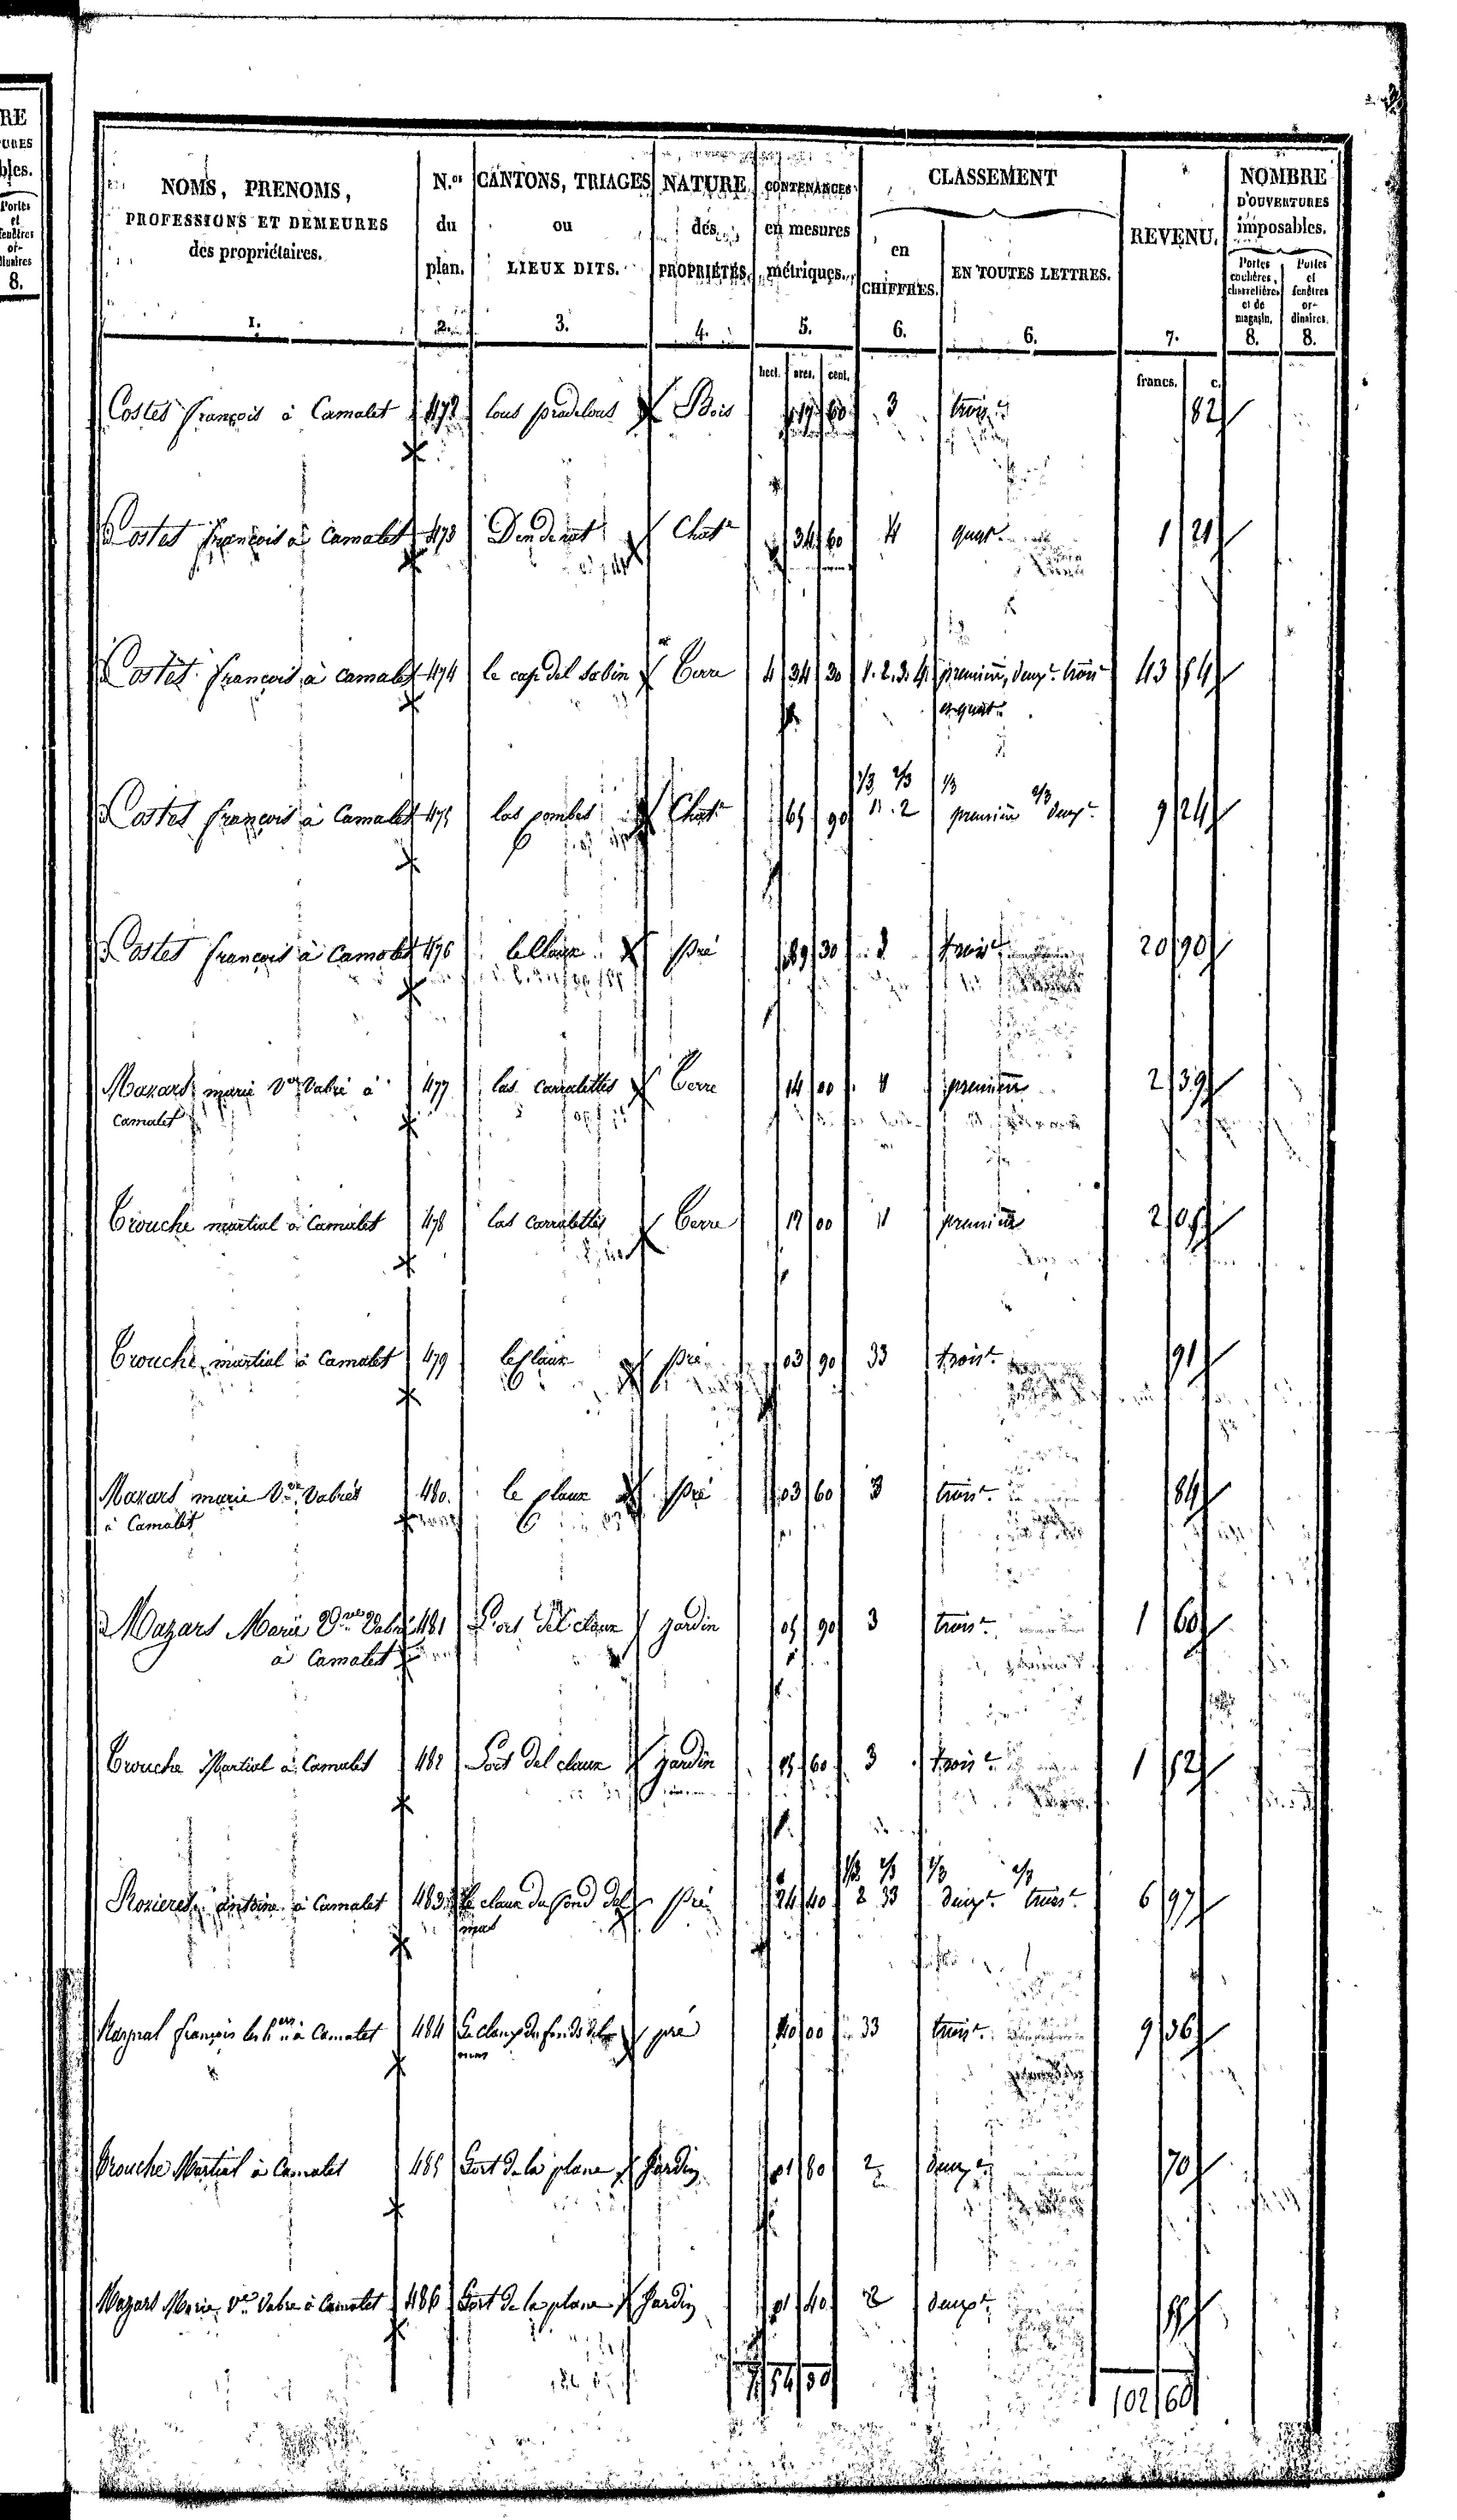 RE
URES
bles.
Portes
et
fenêtres
or-
dinaires
8.
NOMS, PRENOMS, PROFESSIONS ET DEMEURES des propriétaires. 1.
N.os du plan. 2.
CANTONS, TRIAGES ou LIEUX DITS. 3.
NATURE des PROPRIÉTÉS. 4.
CONTENANCES en mesures métriques. 5.
CLASSEMENT
en CHIFFRES. 6.
EN TOUTES LETTRES. 6.
REVENU. 7.
NOMBRE D'OUVERTURES imposables.
Portes cochères, charretières et de magasin. 8.
Portes et fenêtres ordinaires. 8.
hect. ares. cent. francs. c.
Costes françois à Camalet 472 lous pradelous Bois 60 3 trois.e 82
Costes françois à Camalet 473 Chat.r 34 60 4 quat.e 1 21
Costes françois à Camalet 474 le cap del Terre 4 34 30 1. 2. 3. 4 première, deux.e trois.e 43 54
et quat.e
1/3 2/3 1/3 2/3
Costes françois à Camalet 475 las combes Chat.r 65 90 1. 2 première deux.e 9 24
Costes françois à Camalet 476 le Claux pré 89 30 3 trois.e 20 90
Mazars marie V.ve Vabre à 477 las carralettes Terre 14 00 1 première 2 39
Camalet
Trouche martial à Camalet 478 las carralettes Terre 12 00 1 première 2 05
Trouche martial à Camalet 479 le Claux pré 03 90 33 trois.e 91
Mazars marie V.ve Vabres 480. le Claux pré 03 60 3 trois.e 84
à Camalet
Mazars Marie V.ve Vabre 481 L'ort del claux jardin 05 90 3 trois.e 1 60
à Camalet
Trouche Martial à Camalet 482 L'ort del claux jardin 05 60 3 trois.e 1 52
1/3 2/3 1/3 2/3
Rozieres antoine à Camalet 483 le claux du fond del pré 24 40 2 33 deux.e trois.e 6 97
mas
françois les h.ers à Camalet 484 Le claux du fonds del pré 40 00 33 trois.e 9 36
mas
Trouche Martial à Camalet 485 L'ort de la plane Jardin 01 80 2 deux.e 70
Mazars Marie V.ve Vabre à Camalet 486 L'ort de la plane Jardin 01 40 2 deux.e 55
7 54 30 102 60